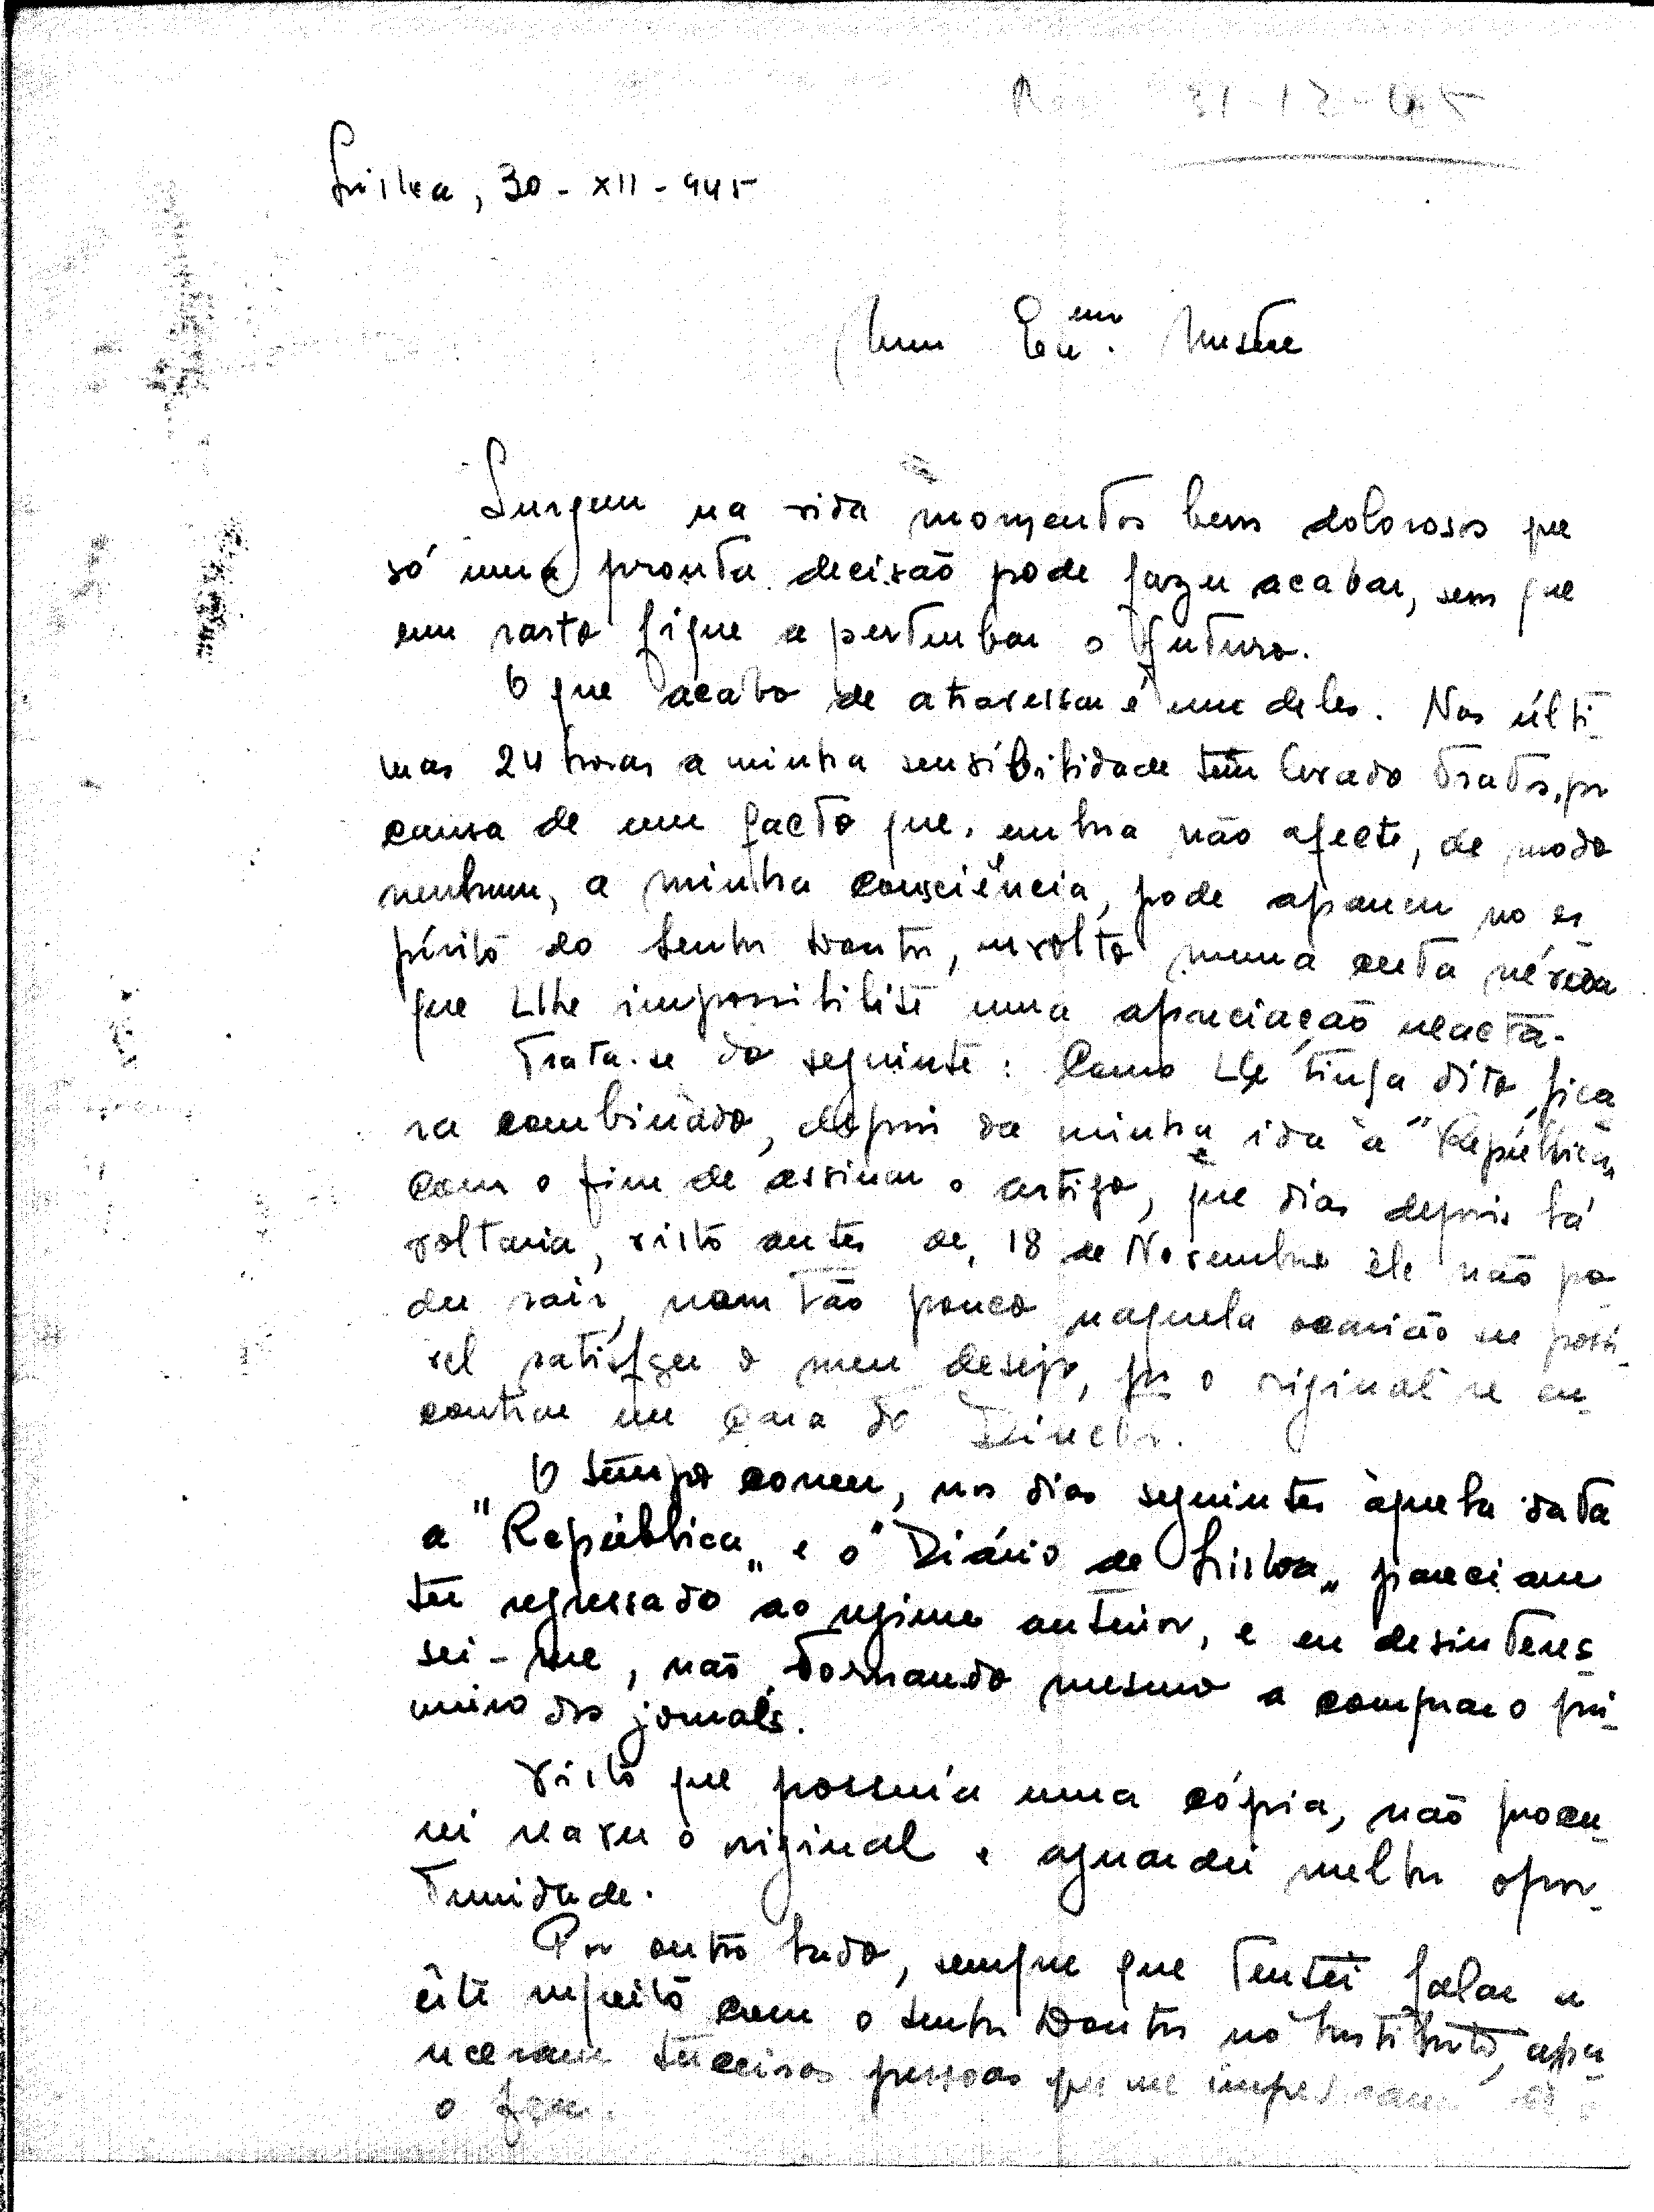 31-12-45
Lisboa, 30-XII-945
Meu Exmo. Mestre
Surgem na vida momentos bem dolorosos que
só uma pronta decisão pode fazer acabar, sem que
um rasto fique a perturbar o futuro.
O que acabo de atravessar é um deles. Nas últi-
mas 24 horas a minha sensibilidade tem levado tratos, por
causa de um facto que, embora não afecte, de modo
nenhum, a minha consciência, pode aparecer no es
pírito do Senhor Doutor, envolto numa certa névoa
que Lhe impossibilite uma apreciação exacta.
Trata-se do seguinte: Como Lhe tinha dito, fica
ra combinado, depois da minha ida à "República„
com o fim de assinar o artigo, que dias depois lá
voltaria, visto antes de 18 de Novembro ele não po-
der sair, nem tão pouco naquela ocasião ser possí-
vel satisfazer o meu desejo, por o original se en-
contrar em casa do Director.
O tempo correu, nos dias seguintes àquela data
a "República„ e o "Diário de Lisboa„ pareciam
ter regressado ao regime anterior, e eu desinteres-
sei-me, não tornando mesmo a comprar o pri-
meiro dos jornais.
Visto que possuía uma cópia, não procu-
rei reaver o original e aguardei melhor opor-
tunidade.
Por outro lado, sempre que tentei falar a
êste respeito com o Senhor Doutor no Instituto, apa-
receram terceiras pessoas que me impediram de
o fazer.